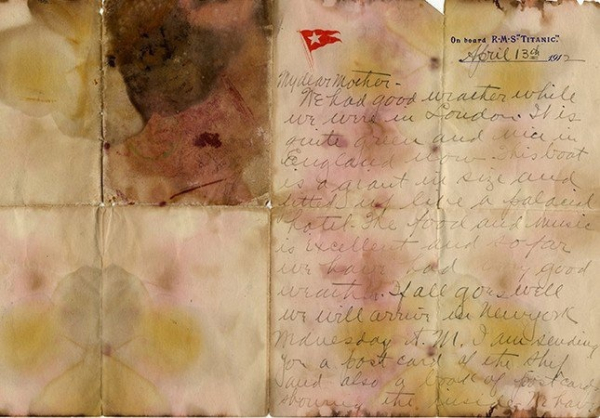 On board R·M·S·"TITANIC".
April 13th 1912
My dear Mother -
We had good weather while
we were in London. It is
quite green and nice in
England now. This boat
is a giant in size and
fitted up like a palacial
hotel. The food and music
is excellent and so far
we have had very good
weather. If all goes well
we will arrive in New York
Wednesday A.M. I am sending
you a post card of the ship
and also a book of postcards
showing the inside. We have